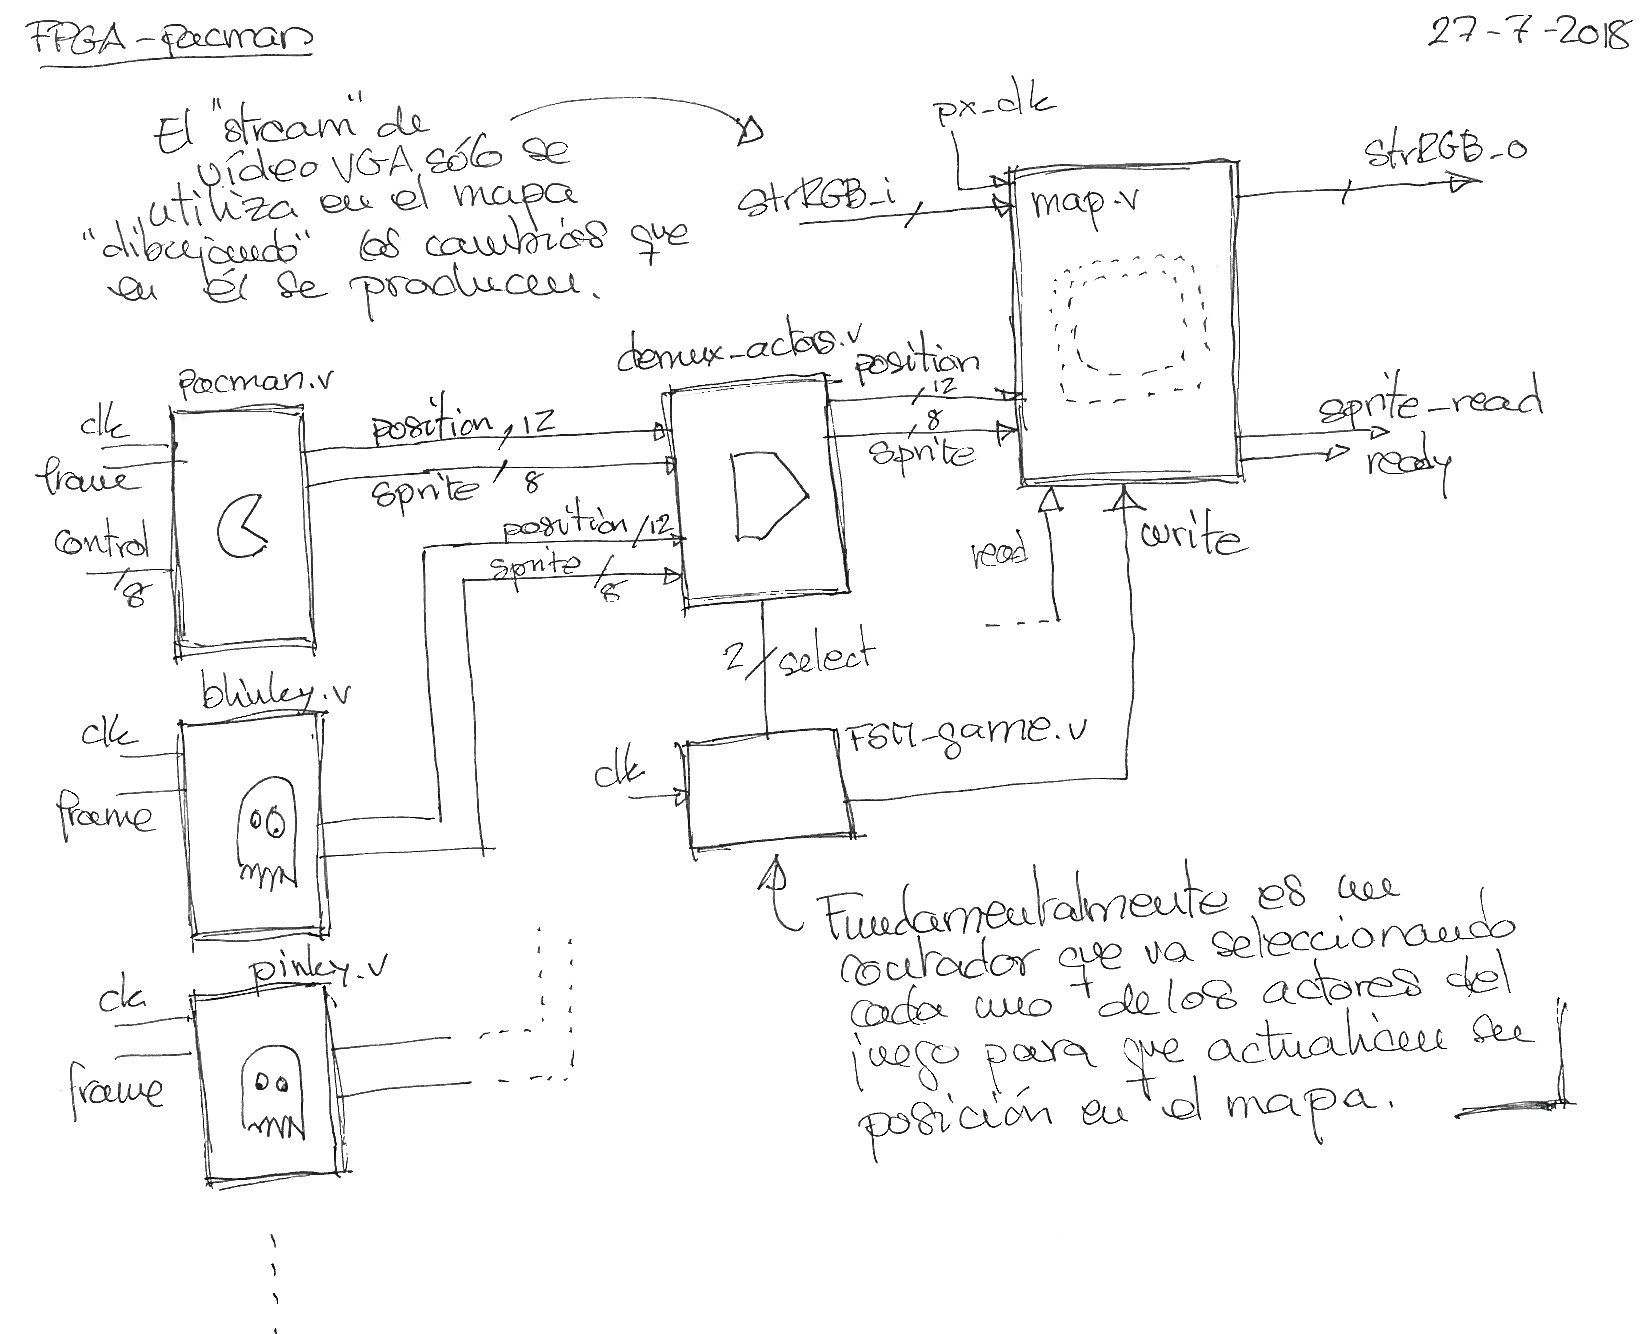 FPGA-pacman
27-7-2018
El "stream" de
vídeo VGA sólo se
utiliza en el mapa
"dibujando" los cambios que
en él se producen.
px_clk
strRGB_i
map.v
strRGB_o
demux_actors.v
position
12
8
sprite
sprite_read
ready
read
write
pacman.v
clk
frame
control
8
position 12
sprite 8
position 12
sprite 8
2 select
blinky.v
clk
frame
clk
FSM_game.v
pinky.v
clk
frame
Fundamentalmente es un
contador que va seleccionando
cada uno de los actores del
juego para que actualicen su
posición en el mapa.